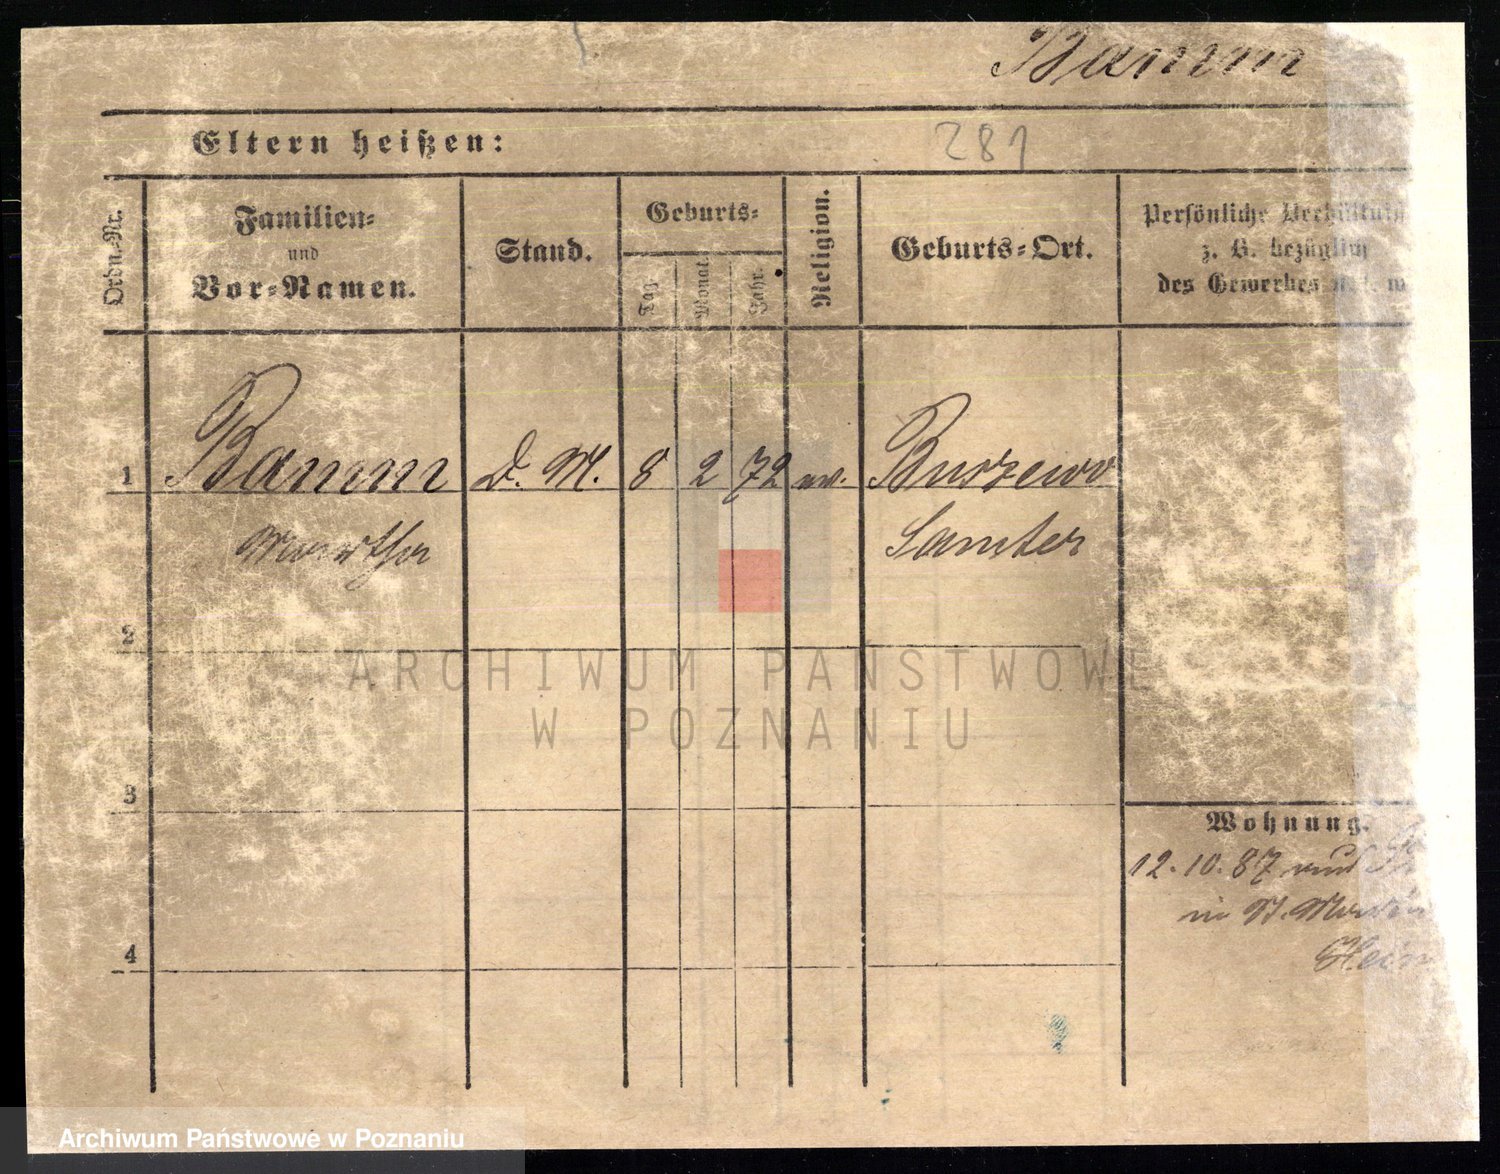 Bamm
Eltern heißen:
281
Ordn.-Nr.
Familien-
und
Vor-Namen.
Stand.
Geburts-
Tag.
Monat.
Jahr.
Religion.
Geburts-Ort.
Persönliche Verhältniss
z. B. bezüglich
des Gewerbes
1 Bamm D. M. 8 2 72 ev. Buszewo
Samter
2
3
4
Wohnung.
12. 10. 87
in St. Martin
Hein
ARCHIWUM PAŃSTWOWE
W POZNANIU
Archiwum Państwowe w Poznaniu